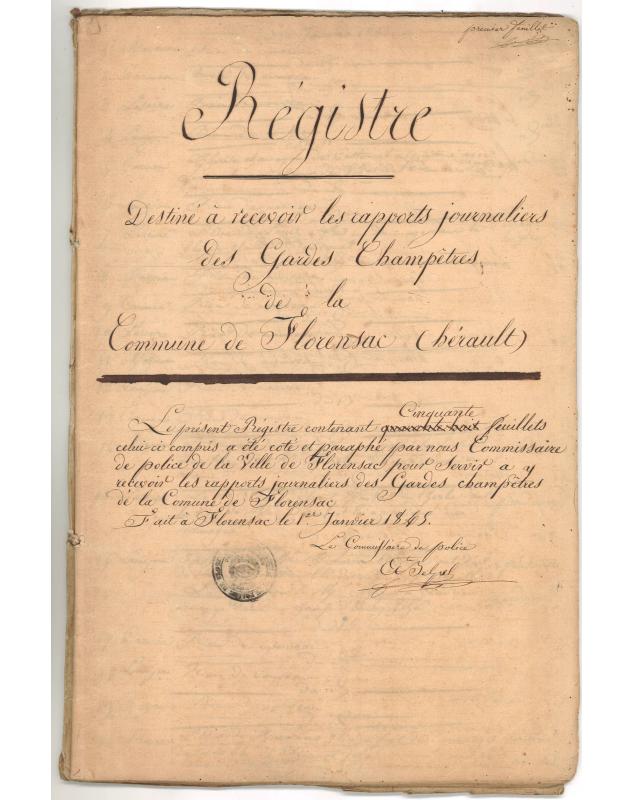 premier feuillet
Régistre
Destiné à recevoir les rapports journaliers
des Gardes Champêtres
de la
Commune de Florensac (hérault)
Cinquante
Le présent Régistre contenant quarante huit feuillets
celui-ci compris a été coté et paraphé par nous Commissaire
de police de la Ville de Florensac pour Servir a y
recevoir les rapports journaliers des Gardes champêtres
de la Comune de Florensac
Fait à Florensac le 1er Janvier 1845.
Le Commissaire de police